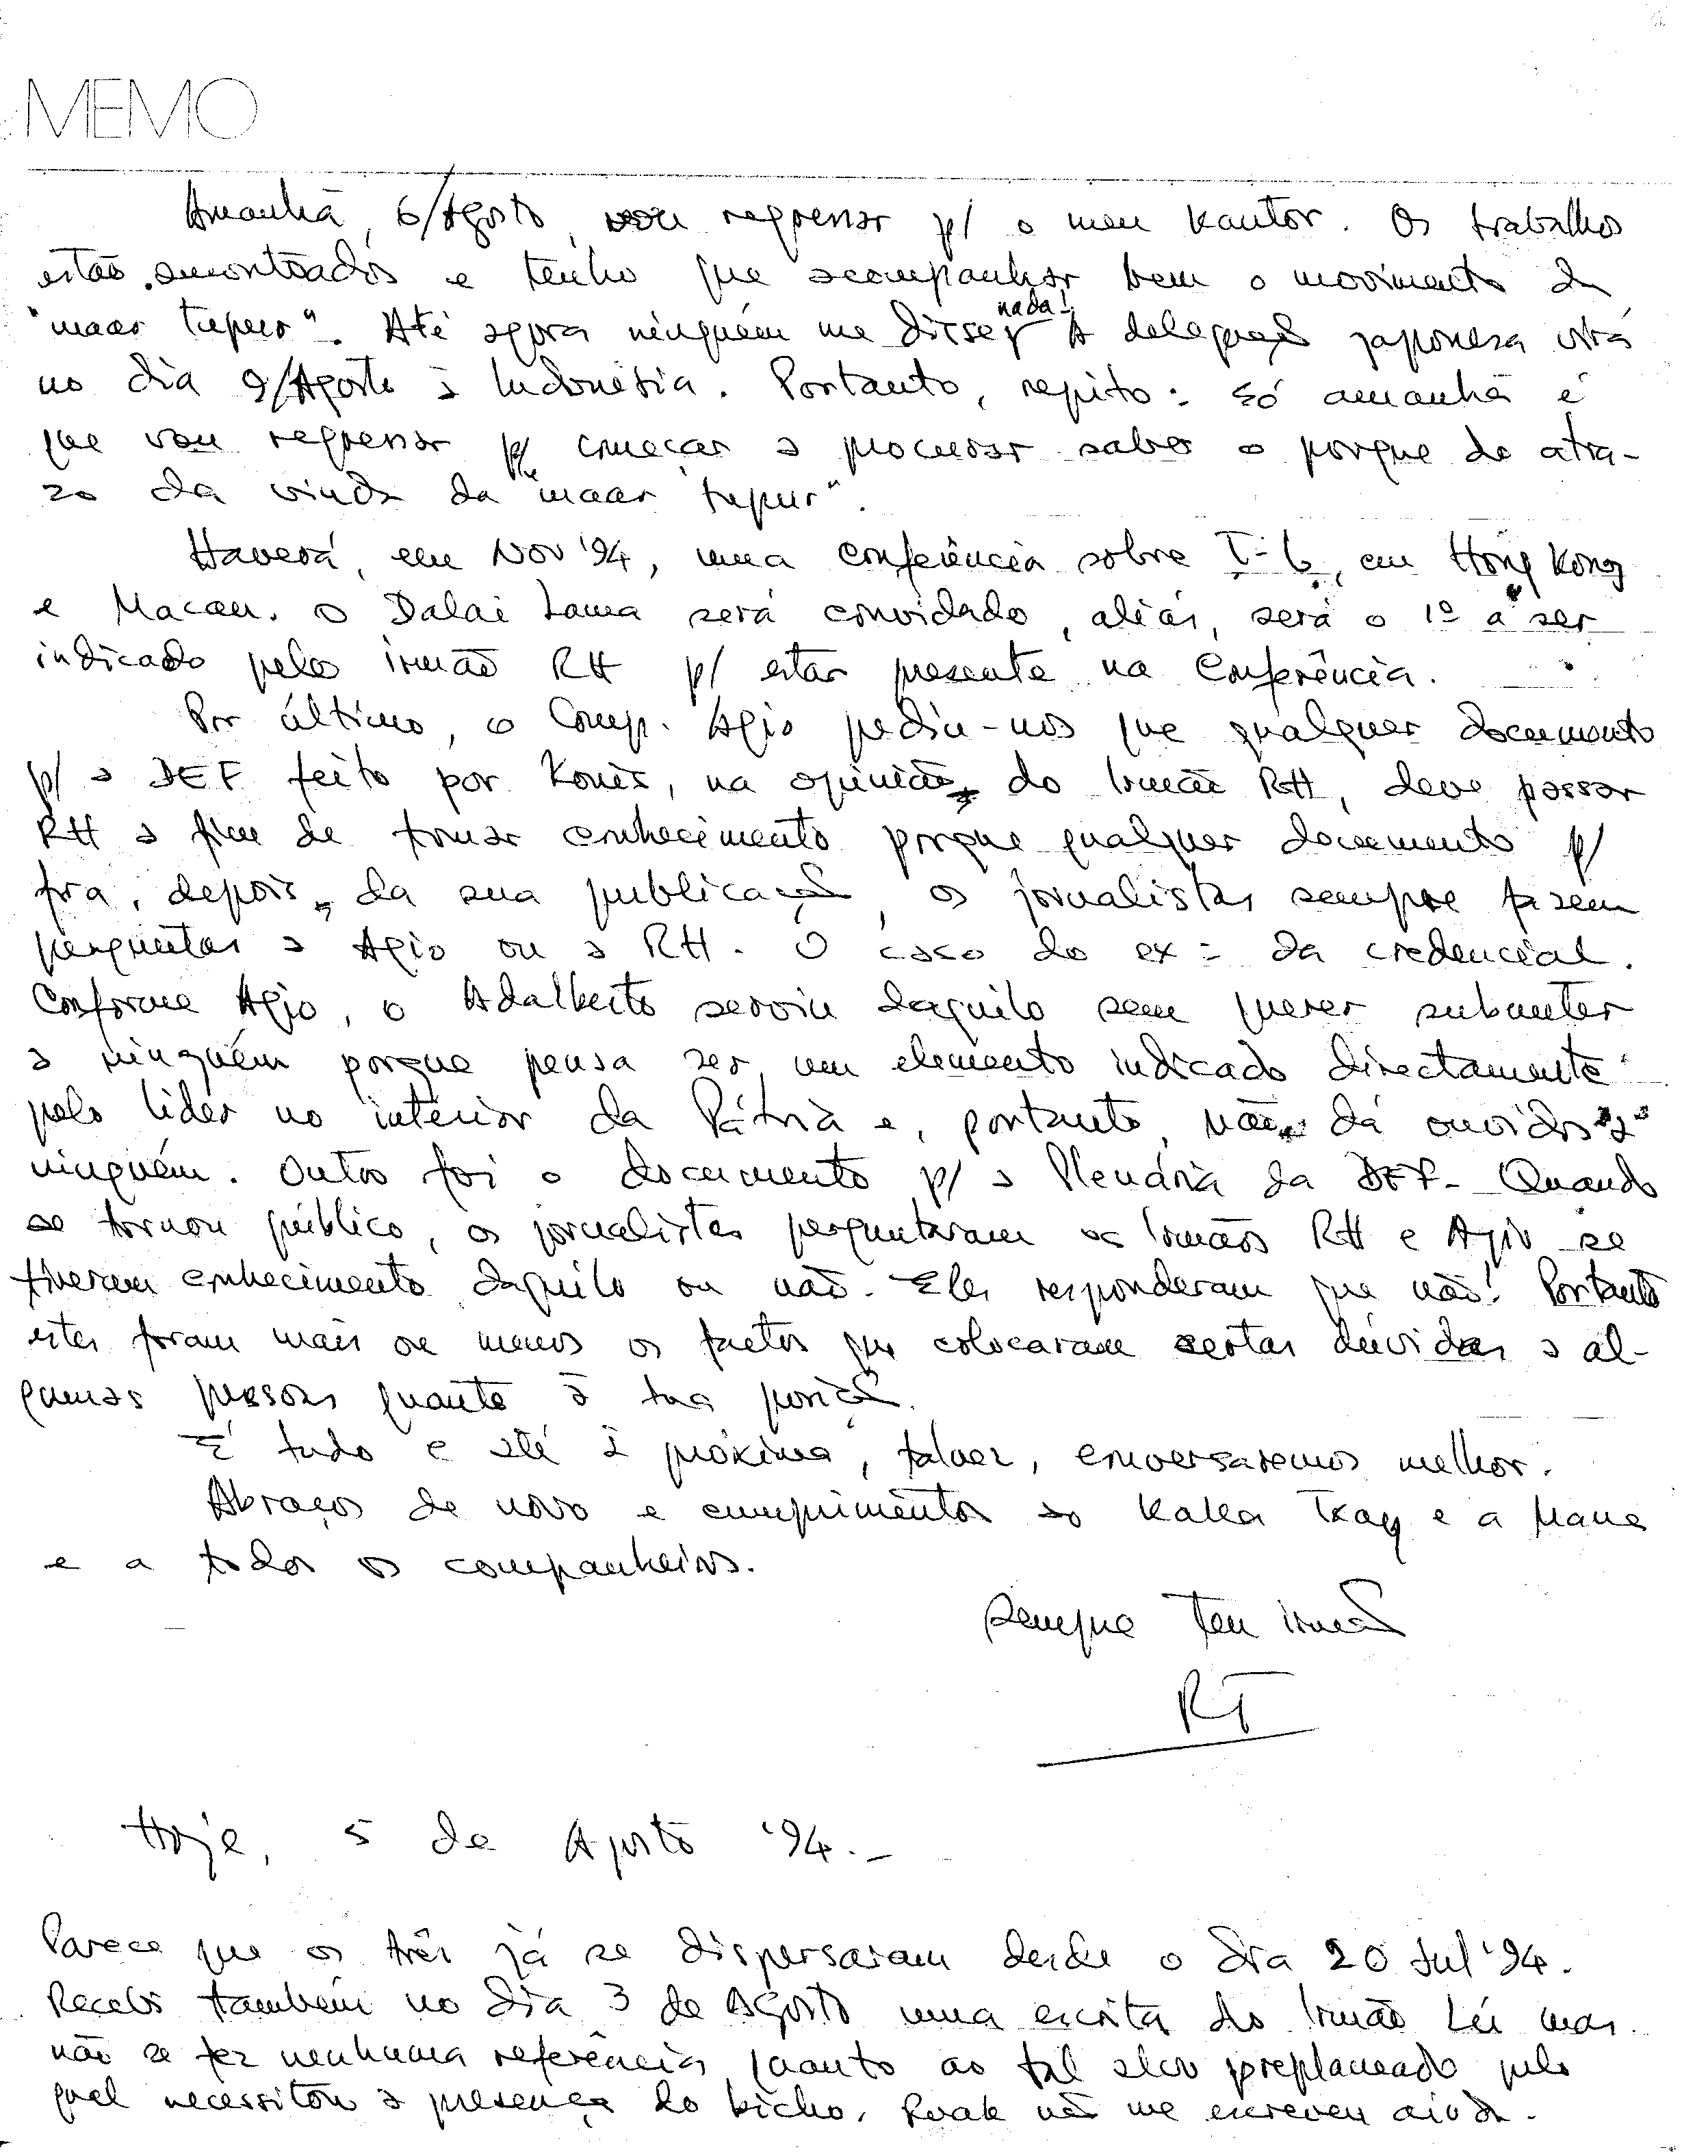 MEMO
Amanhã, 6/Agosto, vou regressar p/ o meu Kantor. Os trabalhos
estão amontoados e tenho que acompanhar bem o movimento da
"maar tupur". Até agora ninguém me disse nada! A delegação japonesa virá
no dia 9/Agosto à Indonésia. Portanto, repito: só amanhã é
que vou regressar p/ começar a procurar saber o porque do atra-
zo da vinda da "maar tupur".
Haverá, em Nov '94, uma conferência sobre T-L, em Hong Kong
e Macau. O Dalai Lama será convidado, aliás, será o 1º a ser
indicado pelo irmão RH p/ estar presente na Conferência.
Por último, o Comp. Agio pediu-nos que qualquer documento
p/ a DEF feito por Konis, na opinião do Irmão RH, deve passar
RH a fim de tomar conhecimento porque qualquer documento p/
fora, depois da sua publicação, os jornalistas sempre fazem
perguntas a Agio ou a RH. O caso do ex: da credencial.
Conforme Agio, o Adalberto serviu daquilo sem querer submeter
a ninguém porque pensa ser um elemento indicado directamente
pelo líder no interior da Pátria e, portanto, não dá ouvidos a
ninguém. Outro foi o documento p/ a Plenária da DEF. Quando
se tornou público, os jornalistas perguntaram os Irmãos RH e Agio se
tiveram conhecimento daquilo ou não. Eles responderam que não! Portanto
estes foram mais ou menos os factos que colocaram certas dúvidas a al-
gumas pessoas quanto à tua posição.
É tudo e até à próxima, talvez, conversaremos melhor.
Abraços de novo e cumprimentos ao Kaka e a Mana
e a todos os companheiros.
Sempre Teu irmão
RT
Hoje, 5 de Agosto '94.-
Parece que os três já se dispersaram desde o dia 20 Jul '94.
Recebi também no dia 3 de Agosto uma escrita do Irmão Lú mas
não se fez nenhuma referência quanto ao tal preplaneado pelo
qual necessitou a presença do bicho. Ruak não me escreveu ainda.